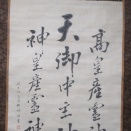 高皇産霊神
天御中主神
神皇産霊神